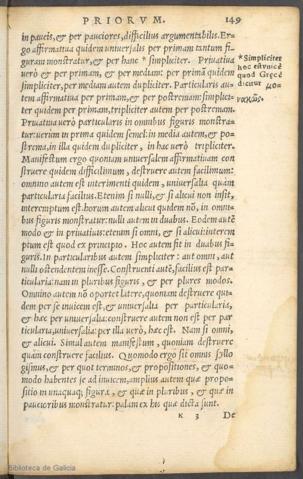 PRIORVM. 149
in paucis, & per pauciores, difficilius argumentabilis. Er-
go affirmatiua quidem uniuersalis per primam tantum fi-
guram monstratur, & per hanc * simpliciter. Priuatiua
uerò & per primam, & per mediam: per primā quidem
simpliciter, per mediam autem dupliciter. Particularis au-
tem affirmatiua per primam, & per postremam: simplici-
ter quidem per primam, tripliciter autem per postremam.
Priuatiua uerò particularis in omnibus figuris monstra-
tur: uerùm in prima quidem semel: in media autem, & po-
strema, in illa quidem dupliciter, in hac uerò tripliciter.
Manifestum ergo quoniam uniuersalem affirmatiuam con
struere quidem difficilimum, destruere autem facilimum:
omnino autem est interimenti quidem, uniuersalia quàm
particularia facilius. Etenim si nulli, & si alicui non insit,
interemptum est: horum autem alicui quidem nō, in omni-
bus figuris monstratur: nulli autem in duabus. Eodem autē
modo & in priuatiuis: etenim si omni, & si alicui: interem
ptum est quod ex principio. Hoc autem fit in duabus fi-
guris. In particularibus autem simpliciter: aut omni, aut
nulli ostendentem inesse. Construenti autē, facilius est par-
ticularia: nam in pluribus figuris, & per plures modos.
Omnino autem nō oportet latere, quoniam destruere qui-
dem per se inuicem est, & uniuersalia per particularia,
& hæc per uniuersalia: construere autem non est per par
ticularia, uniuersalia: per illa uerò, hæc est. Nam si omni,
& alicui. Simul autem manifestum, quoniam destruere
quàm construere facilius. Quomodo ergo fit omnis syllo
gismus, & per quot terminos, & propositiones, & quo-
modo habentes se ad inuicem, amplius autem quæ propo-
sitio in unaquaque figura, & quæ in pluribus, & quæ in
paucioribus monstratur: palam ex his quæ dicta sunt.
K 3 De
* Simpliciter
hoc est unicè
quod Græcè
dicitur μο-
ναχῶς.
Biblioteca de Galicia